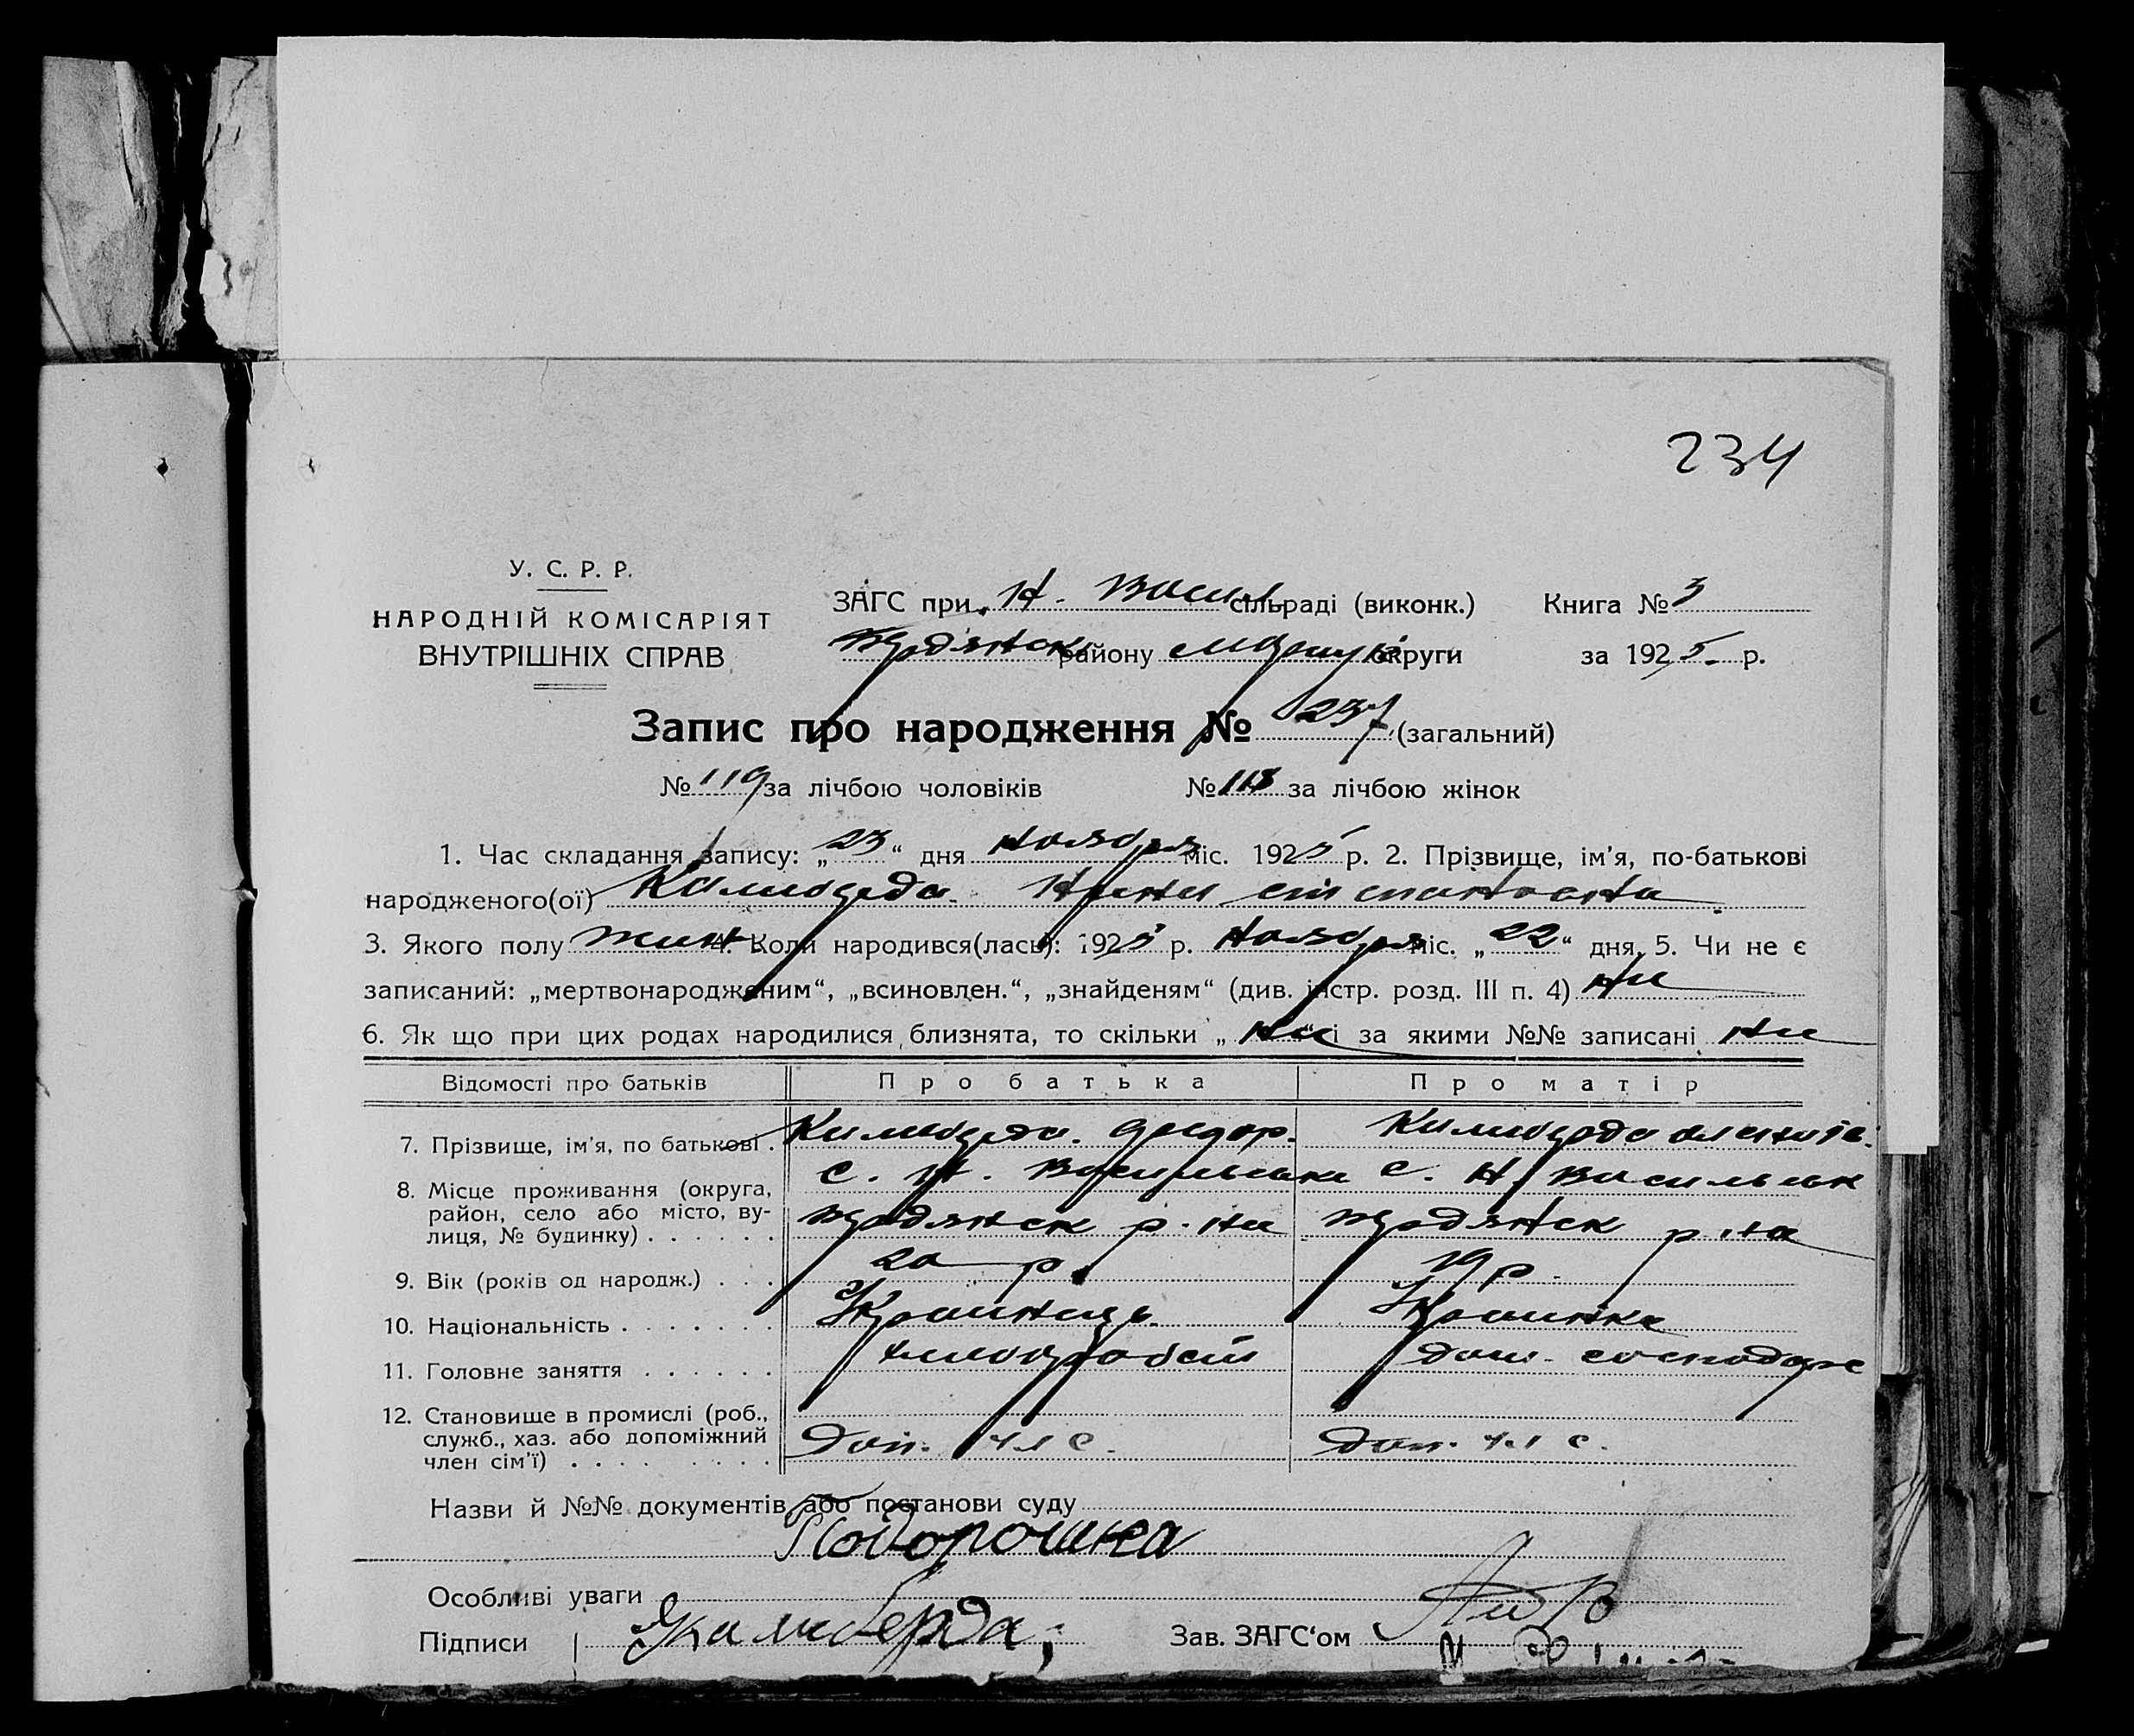 234
У. С. Р. Р.
НАРОДНІЙ КОМІСАРІЯТ
ВНУТРІШНІХ СПРАВ
ЗАГС при Н. Васил. сільраді (виконк.) Книга № 3
району округи за 1925 р.
Запис про народження № 237 (загальний)
№ 119 за лічбою чоловіків № 118 за лічбою жінок
1. Час складання запису: „23“ дня ноября міс. 1925 р. 2. Прізвище, ім’я, по-батькові
народженого(ої)
3. Якого полу жин 4. Коли народився(лась): 1925 р. ноября міс. „22“ дня, 5. Чи не є
записаний: „мертвонародженим“, „всиновлен.“, „знайденям“ (див. інстр. розд. III п. 4) ни
6. Як що при цих родах народилися близнята, то скільки „ни“ і за якими №№ записані ни
Відомості про батьків Про батька Про матір
7. Прізвище, ім’я, по батькові . Федор.
8. Місце проживання (округа, с. Н. Васильевка с. Н. Васильевк
район, село або місто, ву- р-на р-на
лиця, № будинку) . . . . . .
9. Вік (років од народж.) . . . 20 р. 19 р.
10. Національність . . . . . . . Украинець Украинка
11. Головне заняття . . . . . . хлибороб дом. господар
12. Становище в промислі (роб.,
служб., хаз. або допоміжний Доп. чл с. Доп. чл с.
член сім’ї) . . . . . . . . .
Назви й №№ документів або постанови суду
Подорошка
Особливі уваги
Підписи Зав. ЗАГС‘ом